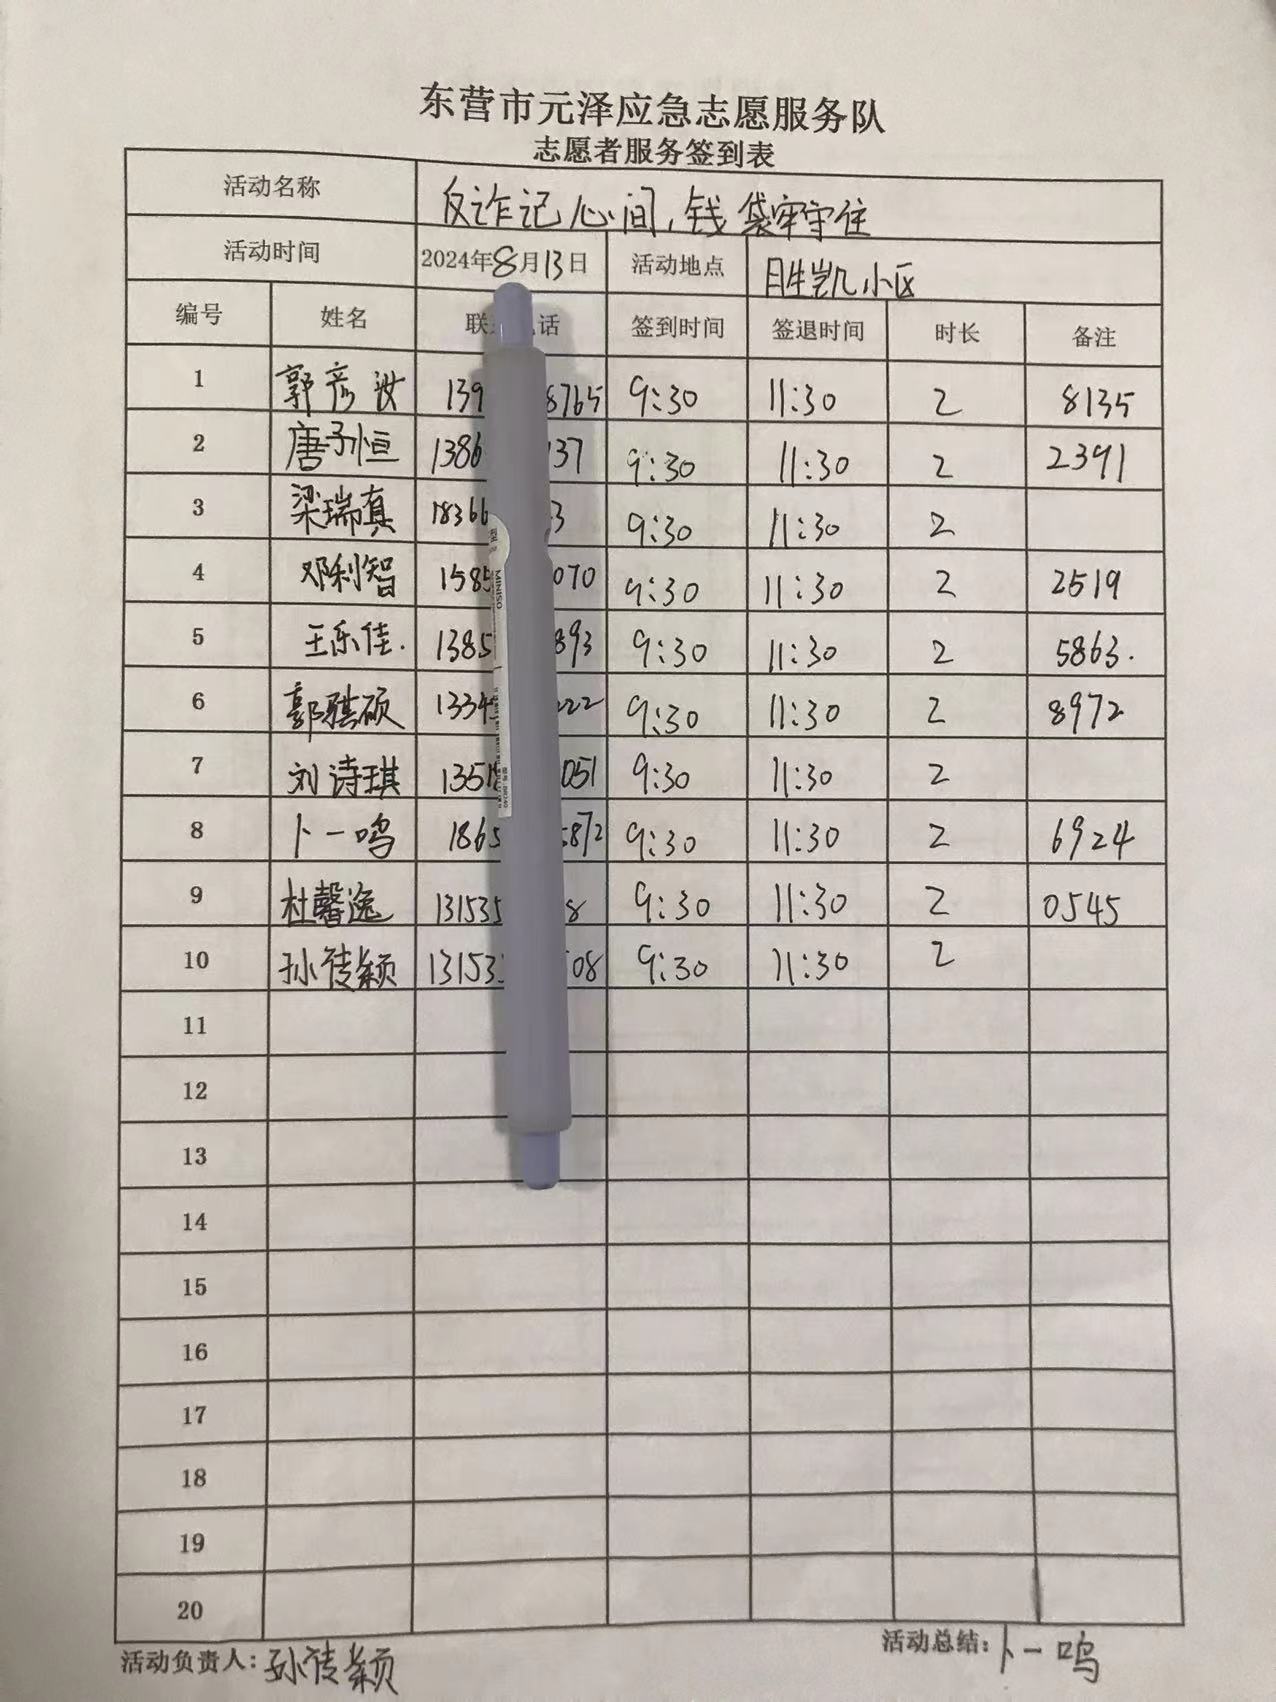 东营市元泽应急志愿服务队
志愿者服务签到表
活动名称 反诈记心间,钱袋牢守住
活动时间 2024年8月13日 活动地点 胜凯小区
编号 姓名 联 话 签到时间 签退时间 时长 备注
1 郭彦汝 139 8765 9:30 11:30 2 8135
2 唐子恒 1386 137 9:30 11:30 2 2391
3 梁瑞真 18366 3 9:30 11:30 2
4 邓利智 1585 070 9:30 11:30 2 2519
5 王乐佳. 1385 893 9:30 11:30 2 5863.
6 郭骐硕 1334 222 9:30 11:30 2 8972
7 刘诗琪 1351 051 9:30 11:30 2
8 卜一鸣 1865 5872 9:30 11:30 2 6924
9 杜馨逸 131535 8 9:30 11:30 2 0545
10 孙倩颖 13153 08 9:30 11:30 2
11
12
13
14
15
16
17
18
19
20
活动负责人:孙倩颖 活动总结:卜一鸣
MINISO